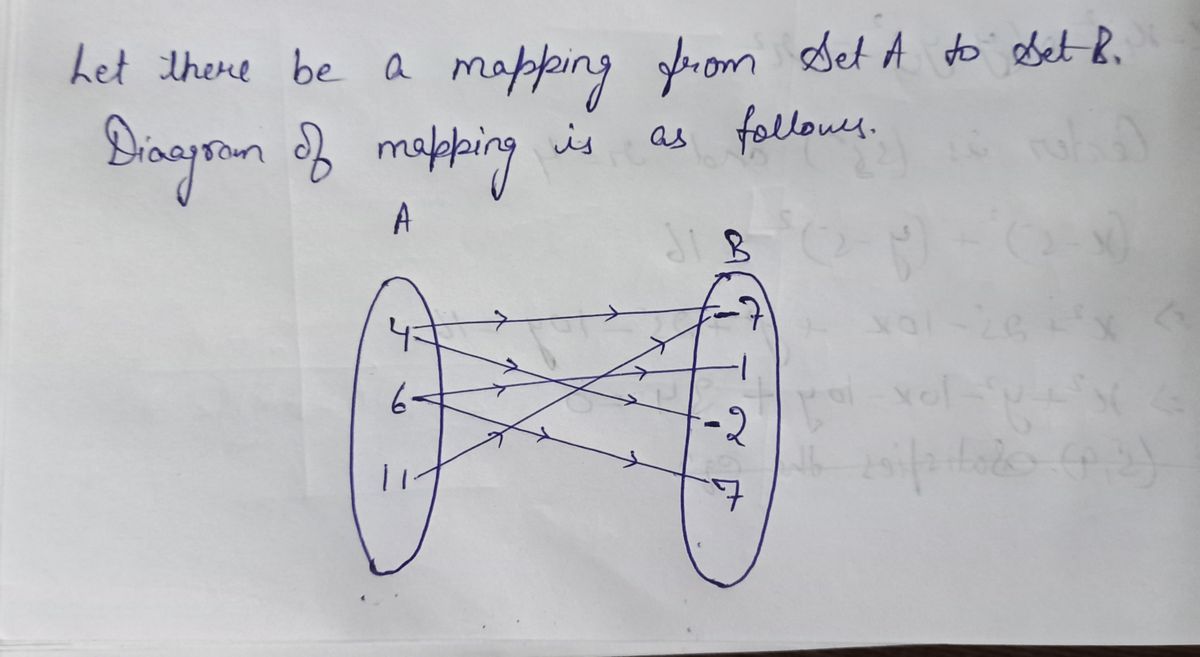 Let there be a mapping from Set A to Set B.
Diagram of mapping is as follows.
A
B
4
-7
6
1
-2
11
7